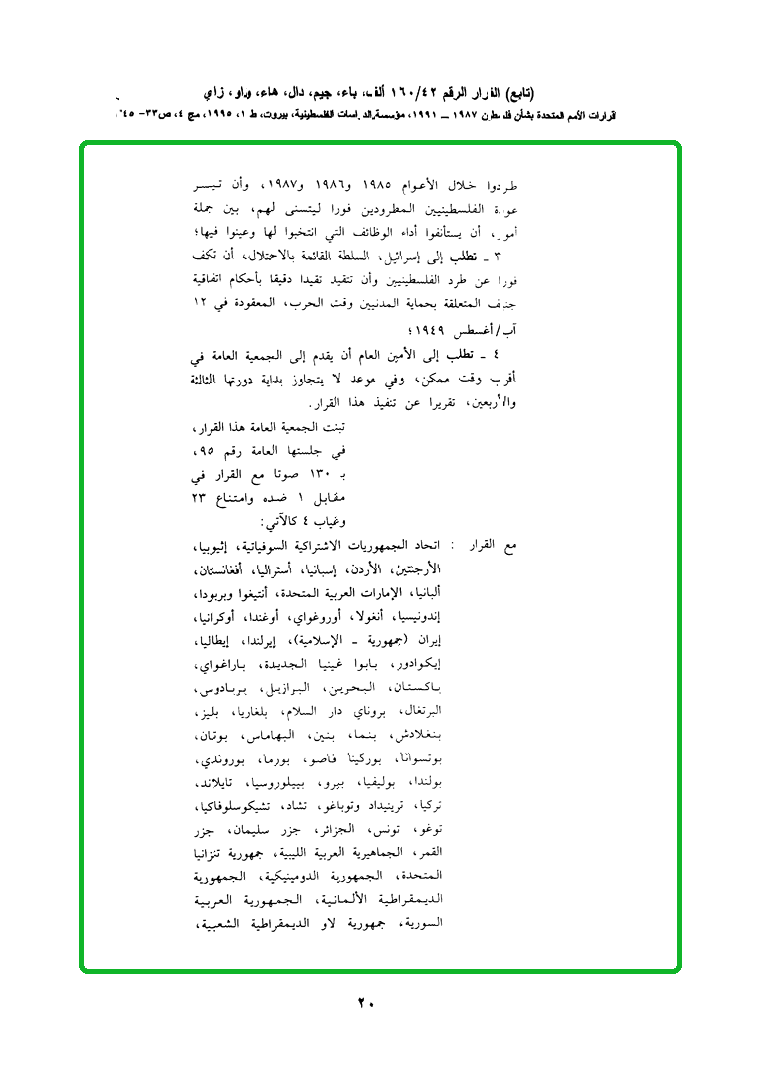 (تابع) القرار الرقم ١٦٠/٤٢ ألف، باء، جيم، دال، هاء، واو، زاي
قرارات الأمم المتحدة بشأن فلسطين ١٩٨٧ ــ ١٩٩١، مؤسسة الدراسات الفلسطينية، بيروت، ط ١، ١٩٩٥، مج ٤، ص٣٣- ٤٥.
طردوا خلال الأعوام ١٩٨٥ و١٩٨٦ و١٩٨٧، وأن تيسر
عودة الفلسطينيين المطرودين فورا ليتسنى لهم، بين جملة
أمور، أن يستأنفوا أداء الوظائف التي انتخبوا لها وعينوا فيها؛
٣ ـ تطلب إلى إسرائيل، السلطة القائمة بالاحتلال، أن تكف
فورا عن طرد الفلسطينيين وأن تتقيد تقيدا دقيقا بأحكام اتفاقية
جنيف المتعلقة بحماية المدنيين وقت الحرب، المعقودة في ١٢
آب/أغسطس ١٩٤٩؛
٤ ـ تطلب إلى الأمين العام أن يقدم إلى الجمعية العامة في
أقرب وقت ممكن، وفي موعد لا يتجاوز بداية دورتها الثالثة
والأربعين، تقريرا عن تنفيذ هذا القرار.
تبنت الجمعية العامة هذا القرار،
في جلستها العامة رقم ٩٥،
بـ ١٣٠ صوتا مع القرار في
مقابل ١ ضده وامتناع ٢٣
وغياب ٤ كالآتي:
مع القرار : اتحاد الجمهوريات الاشتراكية السوفياتية، إثيوبيا،
الأرجنتين، الأردن، إسبانيا، أستراليا، أفغانستان،
ألبانيا، الإمارات العربية المتحدة، أنتيغوا وبربودا،
إندونيسيا، أنغولا، أوروغواي، أوغندا، أوكرانيا،
إيران (جمهورية ـ الإسلامية)، إيرلندا، إيطاليا،
إيكوادور، بابوا غينيا الجديدة، باراغواي،
باكستان، البحرين، البرازيل، بربادوس،
البرتغال، بروناي دار السلام، بلغاريا، بليز،
بنغلادش، بنما، بنين، البهاماس، بوتان،
بوتسوانا، بوركينا فاصو، بورما، بوروندي،
بولندا، بوليفيا، بيرو، بييلوروسيا، تايلاند،
تركيا، ترينيداد وتوباغو، تشاد، تشيكوسلوفاكيا،
توغو، تونس، الجزائر، جزر سليمان، جزر
القمر، الجماهيرية العربية الليبية، جمهورية تنزانيا
المتحدة، الجمهورية الدومينيكية، الجمهورية
الديمقراطية الألمانية، الجمهورية العربية
السورية، جمهورية لاو الديمقراطية الشعبية،
٢٠